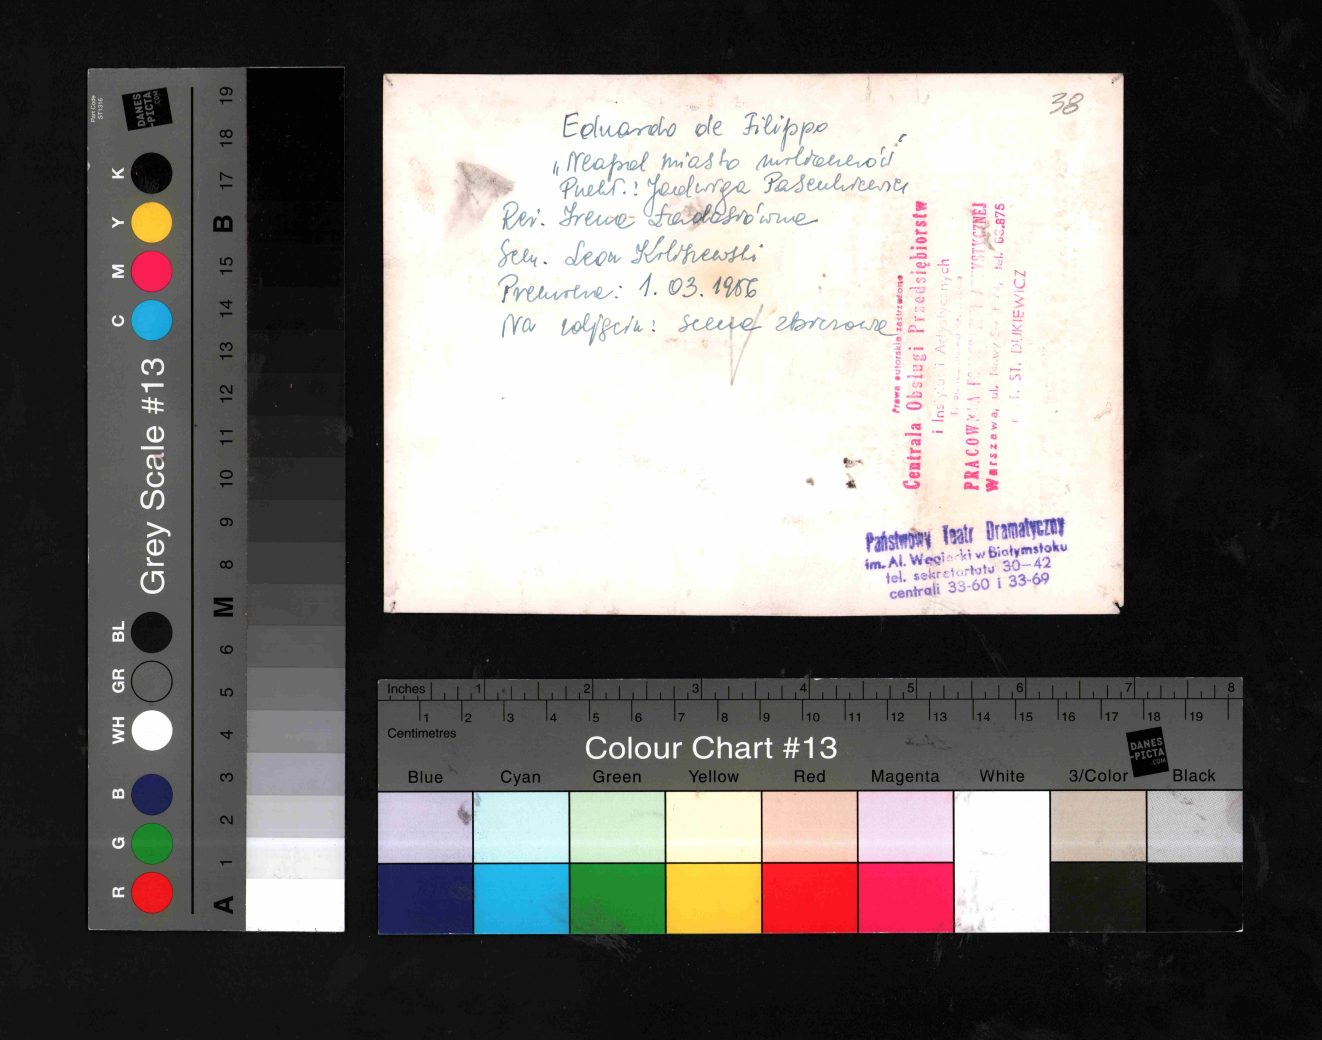 38
Eduardo de Filippo
„Neapol miasto milionerów"
Przekł.: Jadwiga Pasenkiewicz
Reż. Irena Ładosiówna
Scen. Leon
Premiera: 1. 03. 1956
Na zdjęciu: scena zbiorowa
Prawa autorskie zastrzeżone
Centrala Obsługi Przedsiębiorstw
i Instytucji Artystycznych
PRACOWNIA
Warszawa, ul.
ST. DUKIEWICZ
Państwowy Teatr Dramatyczny
im. Al. Węgierki w Białymstoku
tel. sekretariatu 30-42
centrali 33-60 i 33-69
Part Code
ST1316
DANES
-PICTA
.COM
K Y M C
Grey Scale #13
BL GR WH B G R
19 18 17 B 15 14 13 12 11 10 9 8 M 6 5 4 3 2 1 A
Inches 1 2 3 4 5 6 7 8
1 2 3 4 5 6 7 8 9 10 11 12 13 14 15 16 17 18 19
Centimetres
Colour Chart #13
DANES
-PICTA
.COM
Blue Cyan Green Yellow Red Magenta White 3/Color Black